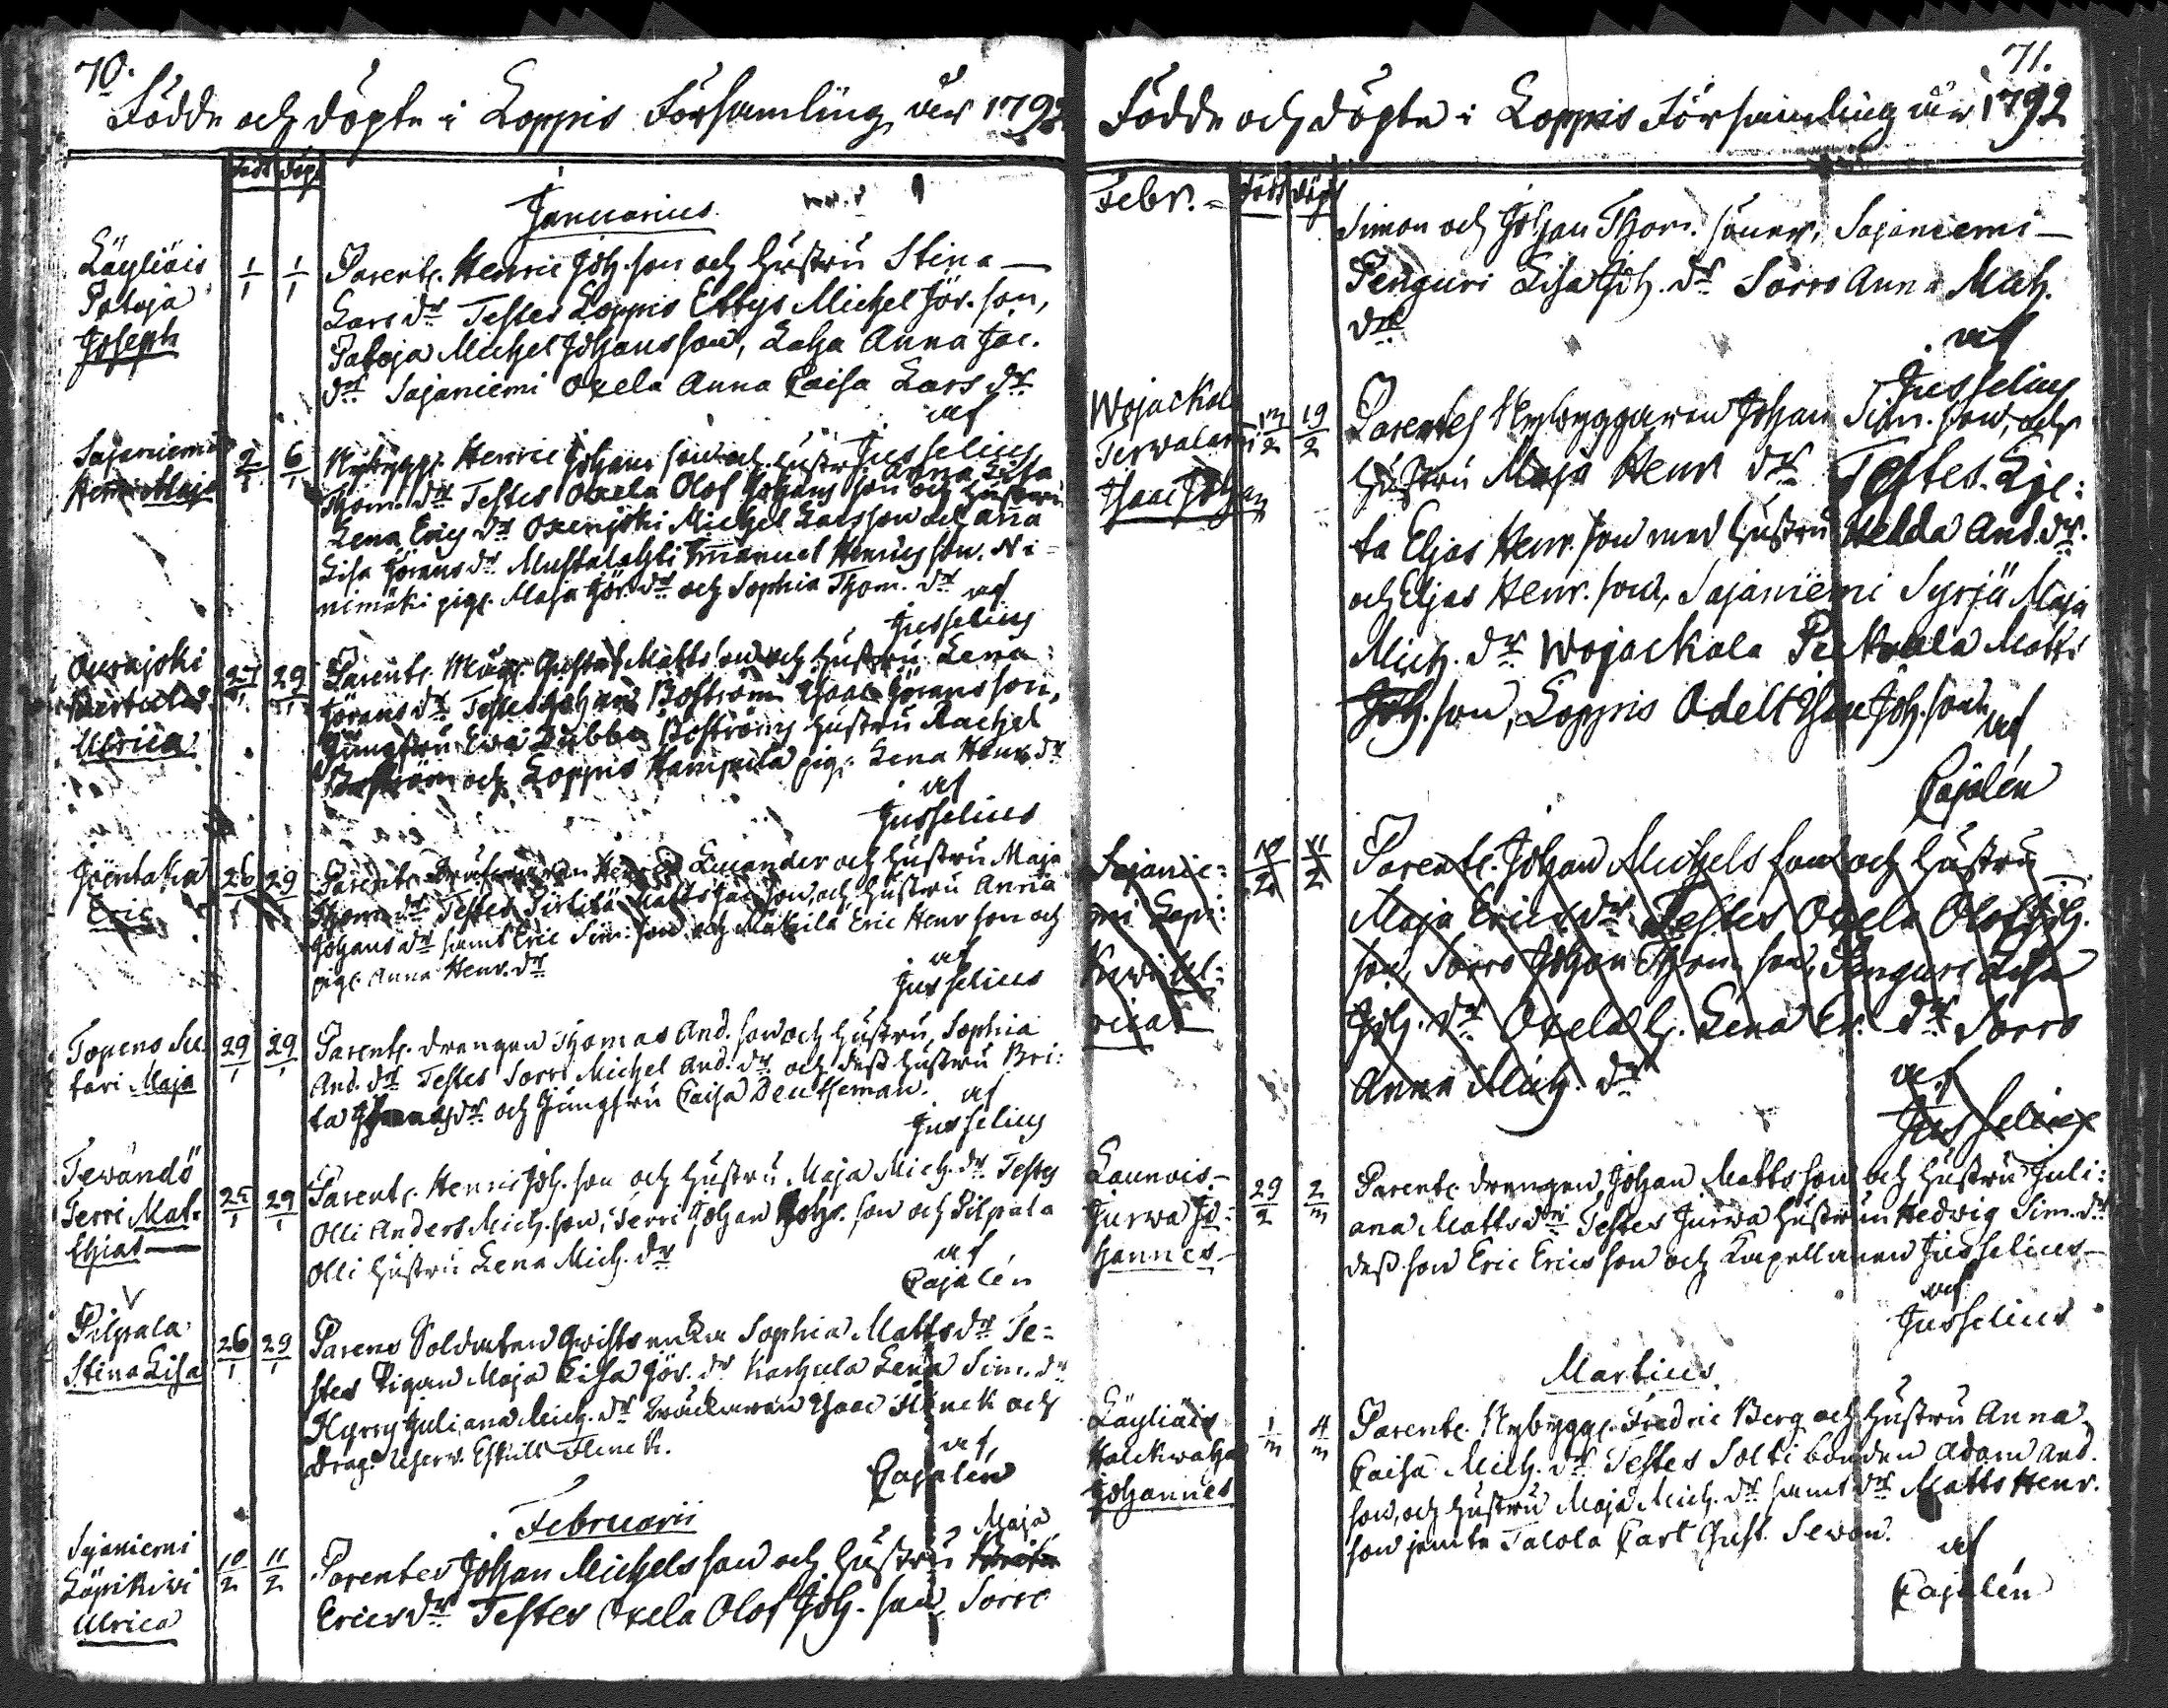 70.
Födde och döpte i Loppis Församling åhr 1792
Född Döp.
Januarius
Läyliäis
Pataja
Joseph
1/1 1/1
Parent. Henric Joh. son och hustru Stina
Lars dr Testes Loppis Ettys Michel Jör. son,
Pataja Michel Johansson, Anna Jac.
dr Sajaniemi Oxela Anna Caisa Lars dr
af
Jusselius
Sajaniemi
Maja
2/1 6/1
Nybygg. Henric Johans son och hustr. Anna Lisa
Thom. dr Testes Oxela Olof Johans son och hustru
Lena Erics dr Michel Larsson och Anna
Lisa Görans dr Mustalahti Emanuel Henrics son, Ni-
nimäki pig. Maja Jör. dr och Sophia Thom. dr
af
Jusselius
Ourajoki
Ulrica
29/1
Parent. Gustaf Mattsson och hustru Lena
Görans dr Testes Johan Boström Isaac Göransson,
Jungfru Ewa Dubbe Boströms hustru Rachel
och Loppis pig. Lena Henr. dr
af
Jusselius
Joentaka
Eric
26/1 29/1
Parent. Lucander och hustru Maja
Thom. dr Testes son och hustru Anna
Johans dr samt Eric Sim. son och Eric Henr son och
pig. Anna Henr. dr
af
Jusselius
Topeno Su-
tari Maja
29/1 29/1
Parent. drengen Thomas And. son och hustru Sophia
And. dr Testes Sorri Michel And. dr och dess hustru Bri-
ta dr och Jungfru Caisa Deutheman.
af
Jusselius
Tewändö
Terri Mat.
Elias
25/1 29/1
Parent. Henric Joh. son och hustru Maja Mich. dr Testes
Olli Anders Mich. son, Terri Johan son och Pilpala
Olli hustru Lena Mich. dr
af
Cajalén
Pilpala
Stina Lisa
26/1 29/1
Parens Soldaten Qvists enka Sophia Matts dr Te-
stes Pigan Maja Lisa Jör. dr Karhula Lena Sim. dr
Hyrsy Juliana Mich. dr Isaac Flinck och
Drag. Reserv. Eskill Flinck.
af
Cajalén
Februarii
Sajaniemi
Läpikiwi
Ulrica
10/2 11/2
Parentes Johan Michelsson och hustru Maja
Erics dr Testes Oxela Olof Joh. son Sorro
71.
Födde och döpte i Loppis Församling åhr 1792
Febr. Född Döpt
Simon och Johan Thom. söner, Sajaniemi
Penguri Lisa Joh. dr Sorro Anna Mich.
dr
af
Jusselius
Wojackala
Isaac Johan
19/2
Parentes Nybyggaren Johan Sim. son, och
hustru Maja Henr dr Testes. Lje-
ta Eljas Henr. son med hustru Hedda And. dr.
och Eljas Henr. son, Sajaniemi Syrjä Maja
Mich. dr Wojackala Matts
Joh. son, Loppis Odelt Isac Joh. son
af
Cajalén
Sajanie-
mi Läpi-
kiwi Ul-
rica
10/2 11/2
Parent. Johan Michels son och hustru
Maja Erics dr Testes Oxela Olof Joh.
son, Sorro Johan Thom. son, Penguri Lisa
Joh. dr Oxela h. Lena Er. dr Sorro
Anna Mich. dr
af
Jusselius
Launois
Jurwa Jo-
hannes
29/2 2/m
Parent. drengen Johan Mattsson och hustru Juli-
ana Matts dr Testes Jurwa hustrun Hedwig Sim. dr
dess son Eric Erics son och Kapellanen Jusselius
af
Jusselius
Martius
Läyliäis
Johannes
1/m 4/m
Parent. Nybygg. Fredric Berg och hustru Anna
Caisa Mich. dr Testes Solti bonden Adam And.
son, och hustru Maja Mich. dr samt dr Matts Henr.
son jemte Talola Carl Gust. Sewon.
af
Cajalén